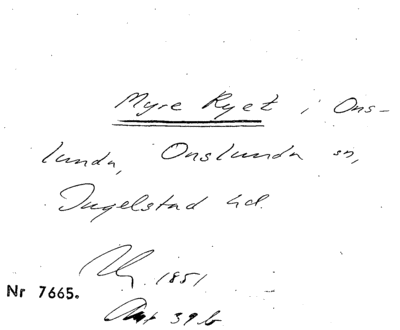 Myre Ryet i Ons-
lunda, Onslunda sn,
Ingelstad hd.
1851
Nr 7665.
Akt 39b